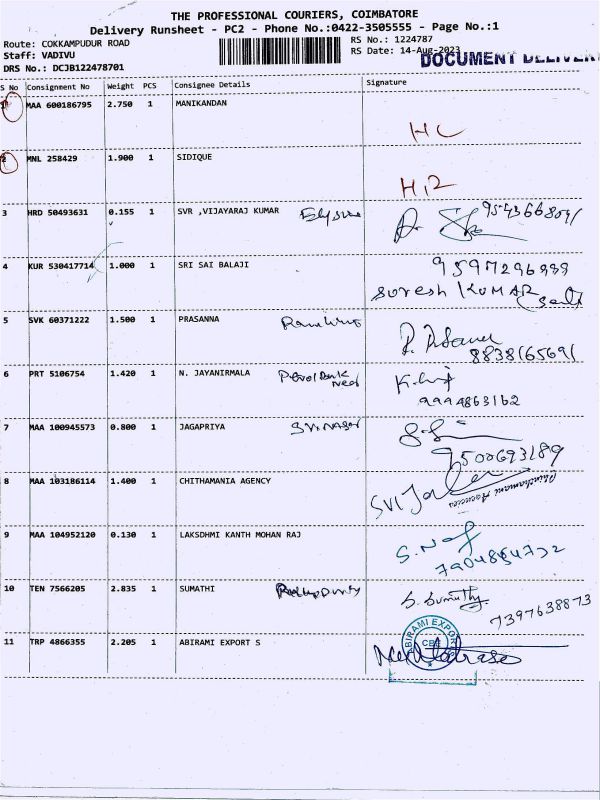 THE PROFESSIONAL COURIERS, COIMBATORE
Delivery Runsheet - PC2 - Phone No.:0422-3505555 - Page No.:1
Route: COKKAMPUDUR ROAD
RS No.: 1224787
Staff: VADIVU
RS Date: 14-Aug-2023
DOCUMENT
DRS No.: DCJB122478701
S No Consignment No Weight PCS Consignee Details Signature
1 MAA 600186795 2.750 1 MANIKANDAN
HC
2 MNL 258429 1.900 1 SIDIQUE
3 HRD 50493631 0.155 1 SVR ,VIJAYARAJ KUMAR
4 KUR 530417714 1.000 1 SRI SAI BALAJI
Suresh KUMAR
5 SVK 60371222 1.500 1 PRASANNA
8838165691
6 PRT 5106754 1.420 1 N. JAYANIRMALA
9994863162
7 MAA 100945573 0.800 1 JAGAPRIYA
9500693189
8 MAA 103186114 1.400 1 CHITHAMANIA AGENCY
9 MAA 104952120 0.130 1 LAKSDHMI KANTH MOHAN RAJ
10 TEN 7566205 2.835 1 SUMATHI
S. Sumathy
7397638873
11 TRP 4866355 2.205 1 ABIRAMI EXPORT S
ABIRAMI EXPORTS
CBE